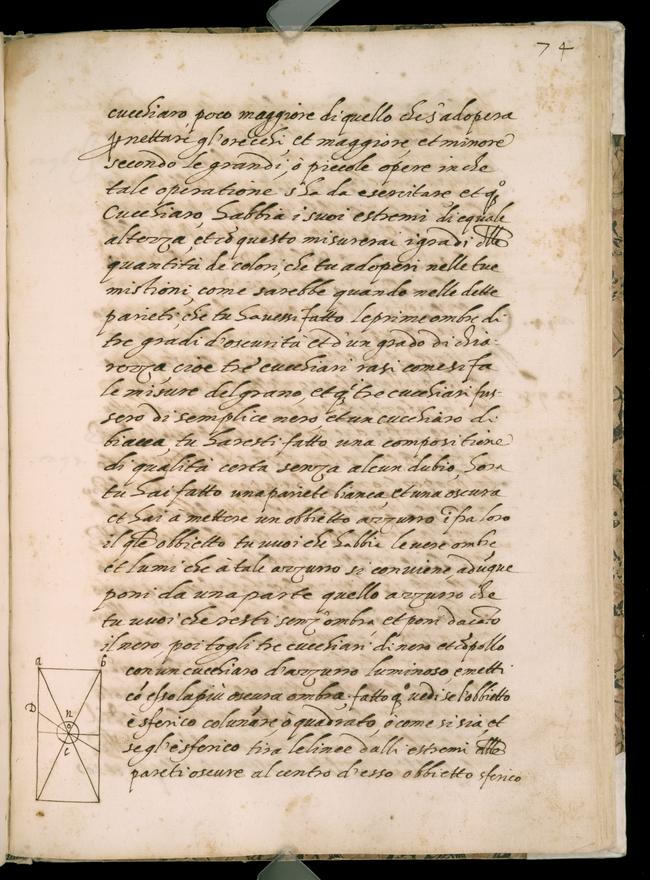 74
cucchiaro poco maggiore di quello che s'adopera
p nettare gl'orecchi, et maggiore, et minore
secondo le grandi, ò piccole opere in che
tale operatione s'ha da esercitare et qo
Cucchiaro, habbia i suoi estremi di equale
altezza, et cō questo misurerai i gradi dlle
quantità de colori, che tu adoperi nelle tue
mistioni, come sarebbe quando nelle dette
parieti, che tu havessi fatto le prime ombre di
tre gradi d'oscurità et d'un grado di chia-
rezza cioe tre cucchiari rasi come si fa
le misure del grano, et qi tre cucchiari fus-
sero di semplice nero, et un cucchiaro di
biacca, tu haresti fatto una compositione
di qualità certa senza alcun dubio, hora
tu hai fatto una pariete bianca, et una oscura
et hai à mettere un obbietto azzurro ī fra loro
il qle obbietto tu vuoi che habbia le vere ombre
et lumi che à tale azzurro si conviene, adūque
poni da una parte quello azzurro che
tu vuoi che resti senz'ombra et poni da cāto
il nero, poi togli tre cucchiari di nero et cōpollo
con un cucchiaro d'azzurro luminoso, e metti
cō esso la più oscura ombra. fatto qo vedi se l'obbietto
è sferico colunare ò quadrato, ò come si sia, et
se gl'è sferico tira le linee dalli estremi dlle
pareti oscure al centro d'esso obbietto sferico
a b
D
n
o
c